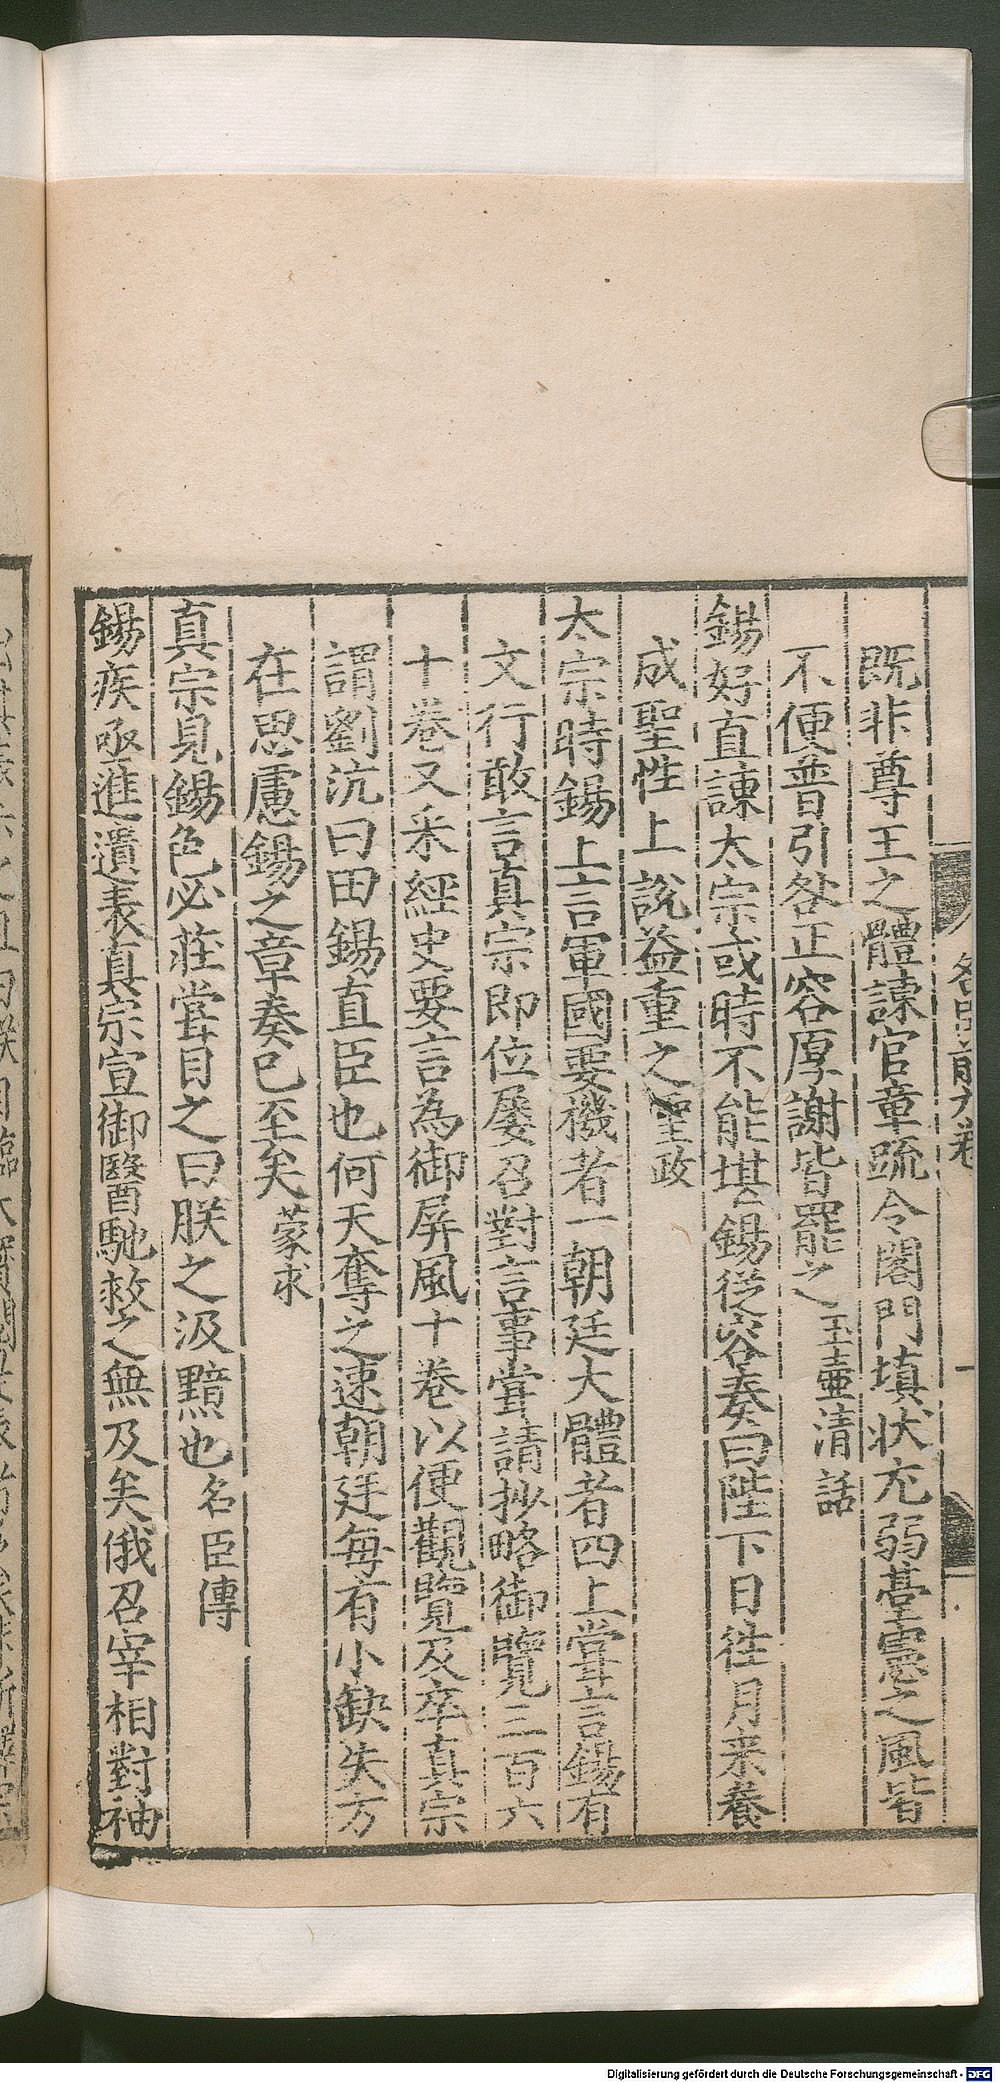 既非尊王之體諫官章疏令閤門填狀充弱臺憲之風皆
不便普引咎正容厚謝皆罷之玉壷清話
錫好直諫太宗或時不能堪錫從容奏曰陛下日徃月来養
成聖性上說益重之聖政
太宗時錫上言軍國要機者一朝廷大體者四上甞言錫有
文行敢言真宗即位屡召對言事甞請抄略御覽三百六
十巻又采經史要言為御屏風十巻以便觀覽及卒真宗
謂劉沆曰田錫直臣也何天奪之速朝廷每有小缺失方
在思慮錫之章奏已至矣蒙求
真宗見錫色必莊甞目之曰朕之汲黯也名臣傳
錫疾亟進遺表真宗宣御醫馳救之無及矣俄召宰相對袖
Digitalisierung gefördert durch die Deutsche Forschungsgemeinschaft - DFG